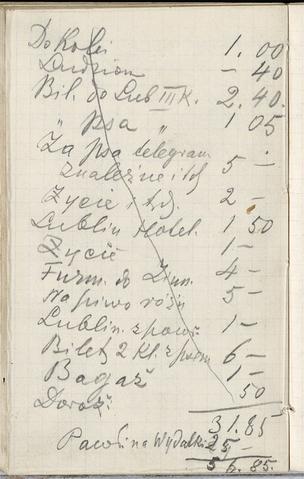 Do Kolei 1. 00
Ludziom – 40
Bil. do Lub III K. 2. 40.
" psa " 1 05
Za psa telegram
znaleźne i t d 5 –
Życie i t. d. 2 –
Lublin Hotel. 1 50
Życie 1 –
Furm. do 4 –
Na piwo różn 5 –
Lublin. z pow. 1 –
Bilet 2 Kl. z psem 6 –
Bagaż 1 –
Doroż. 50
31.85
Pawłina Wydatki 25 –
56.85.